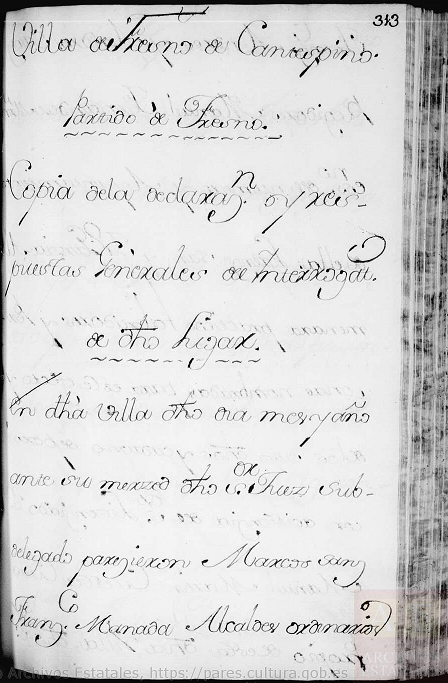 313
Villa de Fresno de Cantespino.
Partido de Fresno.
Copia dela declarazn. o Yres-
puestas Generales de Interrogato.
de dho Lugar.
En dha Villa dho dia mes y año
ante su merzed dho Sor. Juez sub-
delegado parezieron Marcos Sanz
Franco. Manada Alcaldes ordinarios
Archivos Estatales, https://pares.cultura.gob.es